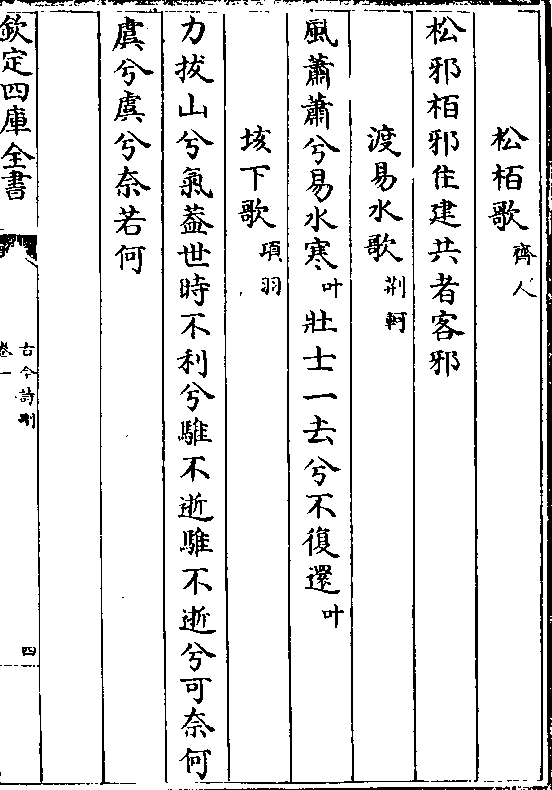 松栢歌 齊人
松邪栢邪住建共者客邪
渡易水歌 荆軻
風蕭蕭兮易水寒叶壯士一去兮不復還叶
垓下歌 項羽
力拔山兮氣葢世時不利兮騅不逝騅不逝兮可奈何
虞兮虞兮奈若何
欽定四庫全書
古今詩刪
卷一
四